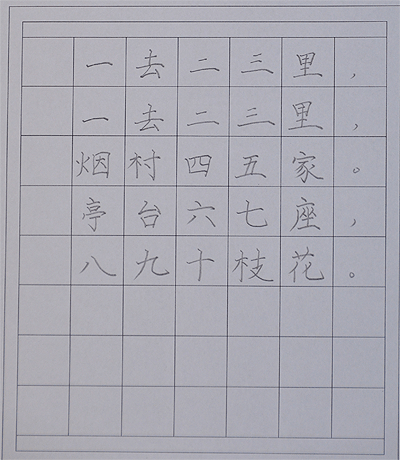 一去二三里，
一去二三里，
烟村四五家。
亭台六七座，
八九十枝花。